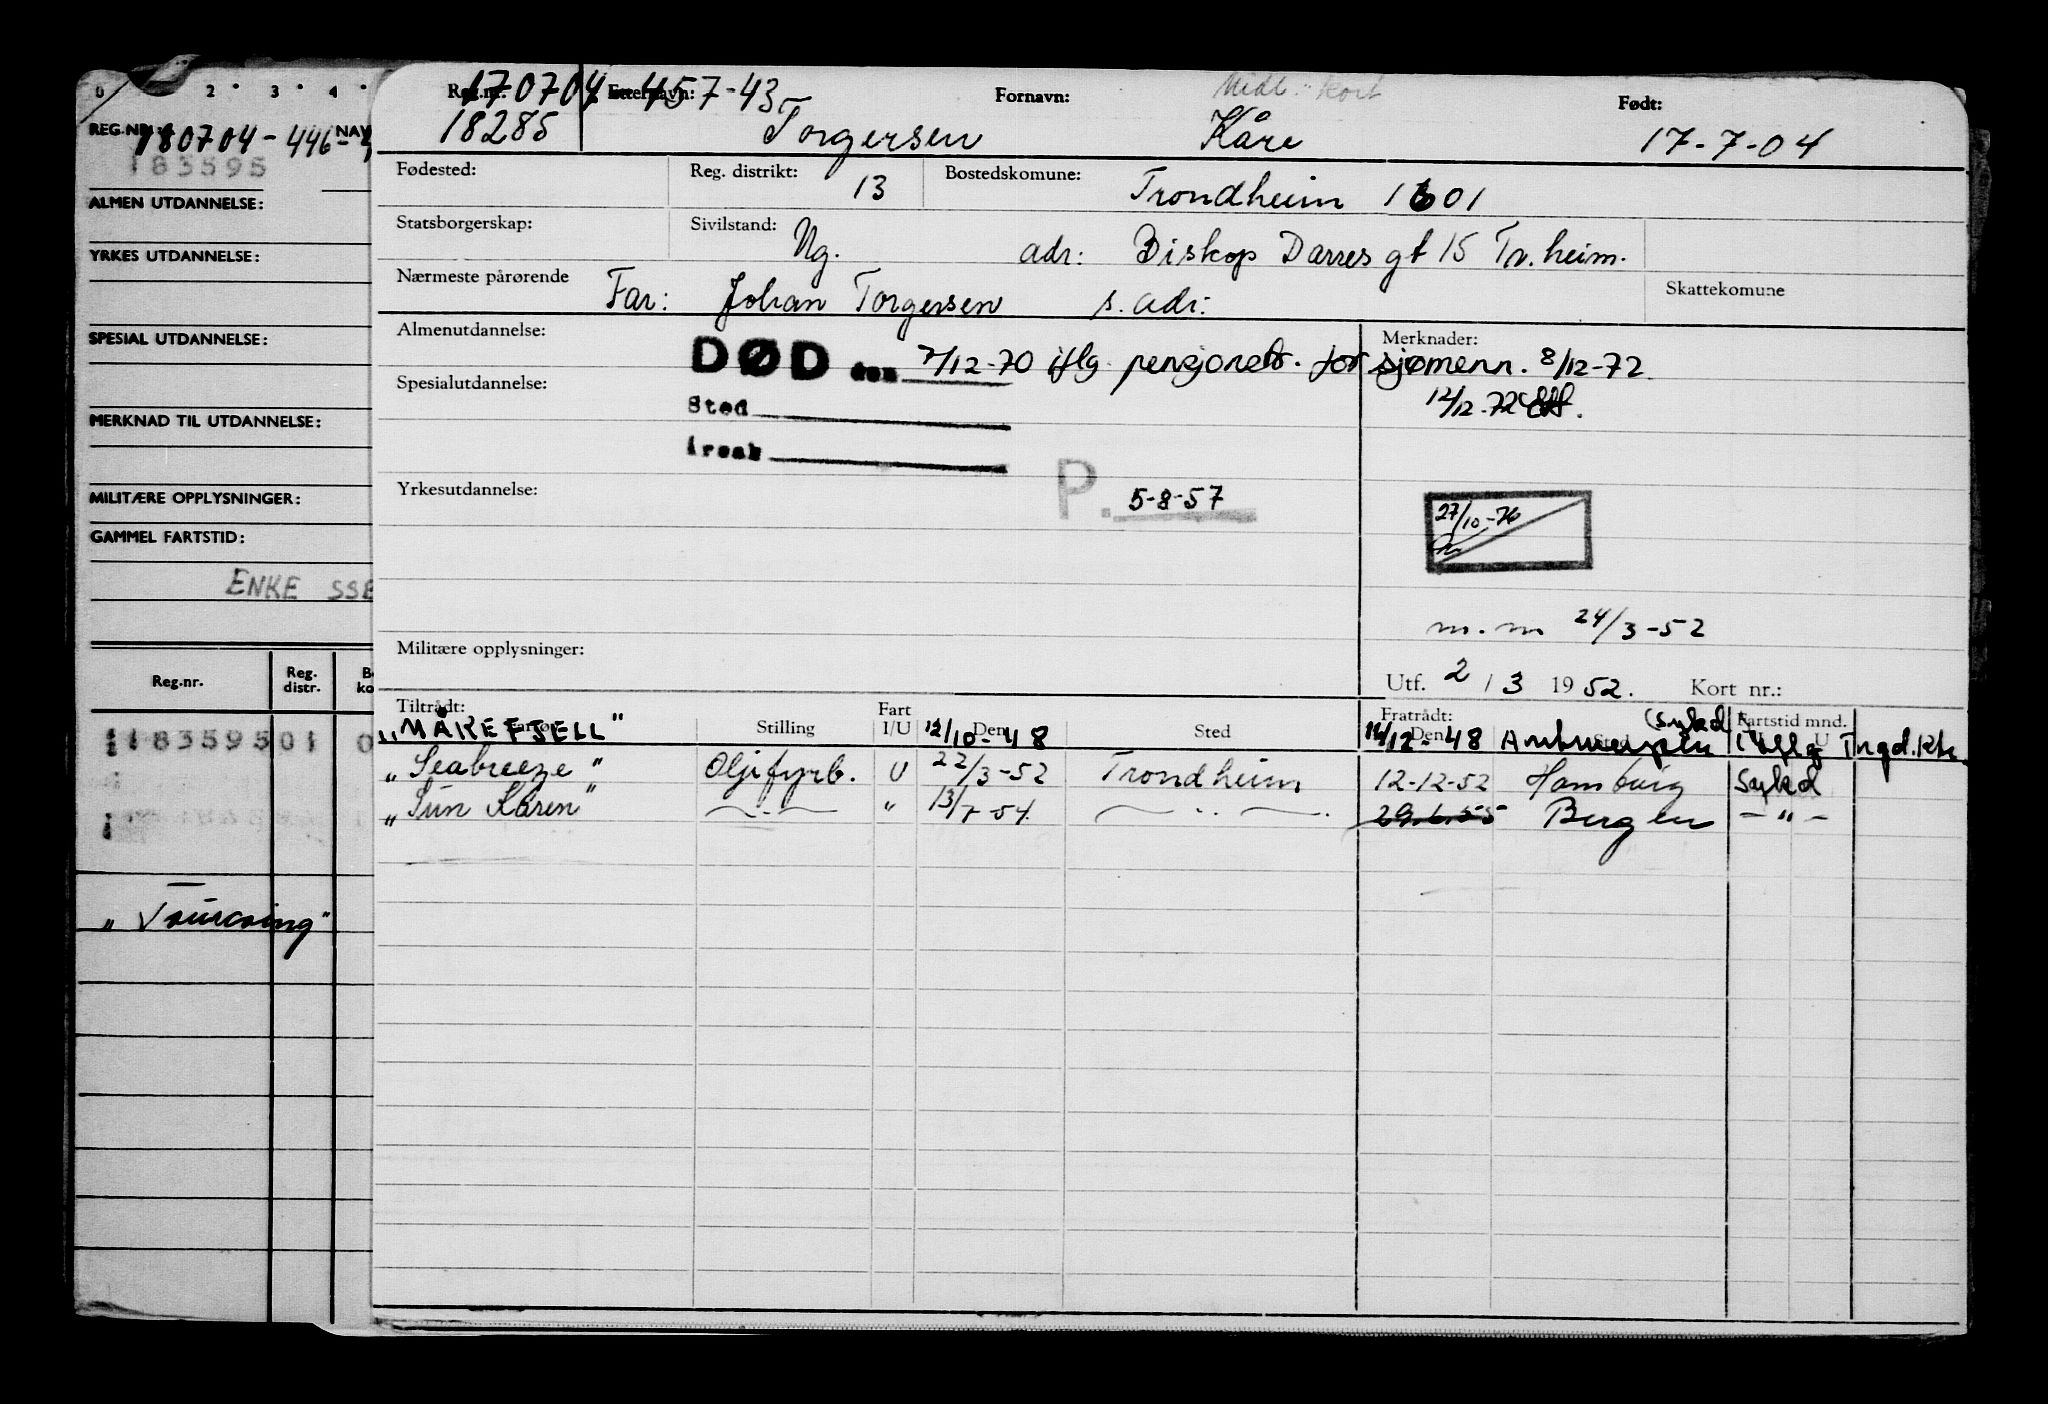 0 2 3 4
REG.NR.: 180704-446- NAV
183595
ALMEN UTDANNELSE:
YRKES UTDANNELSE:
SPESIAL UTDANNELSE:
MERKNAD TIL UTDANNELSE:
MILITÆRE OPPLYSNINGER:
GAMMEL FARTSTID:
ENKE SSE
Reg.nr. Reg. distr.
18359501 0
"Tourcoing"
Midl. Kort
Reg.nr. 170704-45743 Etternavn: Fornavn: Født:
18285 Torgersen Kåre 17-7-04
Fødested: Reg. distrikt: 13 Bostedskomune: Trondheim 1601
Statsborgerskap: Sivilstand: Ug. adr: Biskop Darres gt 15 Tr.heim.
Nærmeste pårørende Far: Johan Torgersen s. adr: Skattekomune
Almenutdannelse: Merknader:
DØD den 7/12-70 iflg. pensjonstr. for sjømenn. 8/12-72
Spesialutdannelse: 12/12-72
Sted
Årsak
Yrkesutdannelse: P. 5-8-57
27/10-76
m.m 24/3-52
Militære opplysninger:
Utf. 2/3 1952. Kort nr.:
Tiltrådt: Fart Fratrådt: (sykd) Fartstid mnd.
Stilling I/U Den Sted Den Sted U
"MÅKEFJELL" 12/10-48 14/12-48 Antwerpen iflg Trgd.Kts.
"Seabreeze" Oljefyrb. U 22/3-52 Trondheim 12-12-52 Hamburg Sykd
"Sun Karen" — " — " 13/7-54 — " — 29.6.55 Bergen — " —